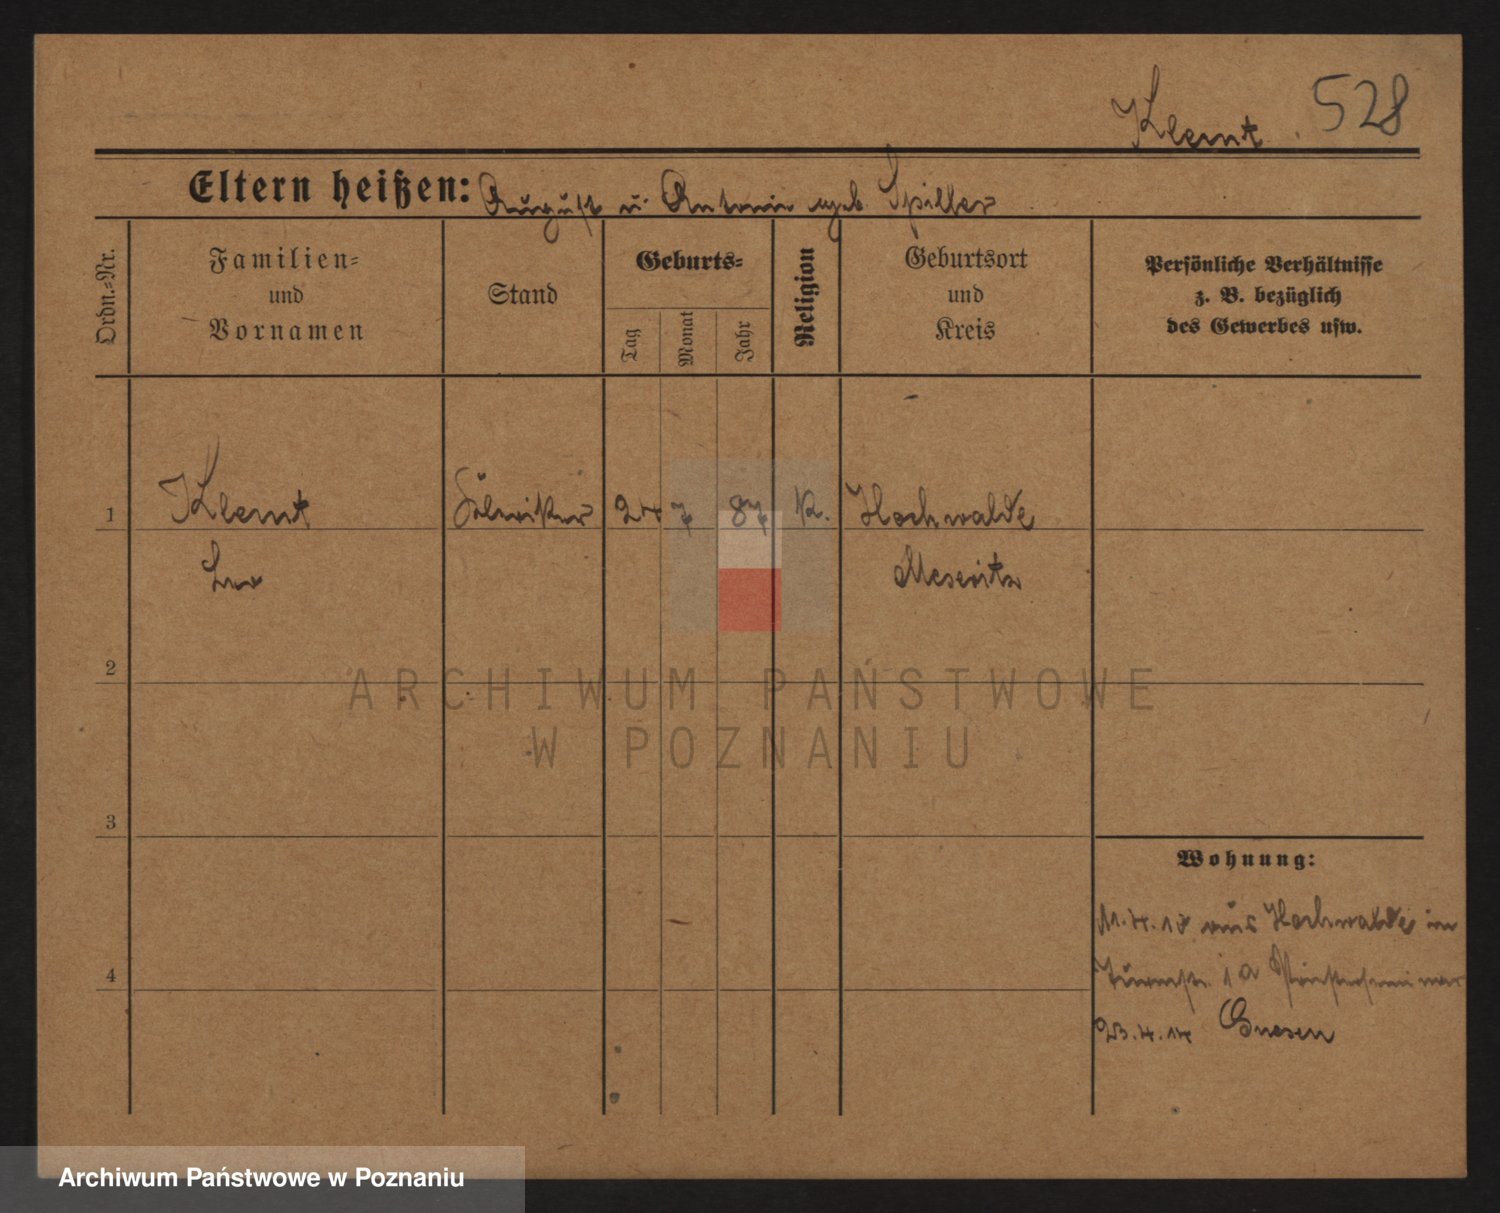 Klemt. 528
Eltern heißen: August u. Antonie geb. Spiller
Ordn.=Nr.
Familien=
und
Vornamen
Stand
Geburts=
Tag
Monat
Jahr
Religion
Geburtsort
und
Kreis
Persönliche Verhältnisse
z. B. bezüglich
des Gewerbes usw.
1 Klemt 24 7 87 K. Hochwalde
Leo Meseritz
2
3
4
Wohnung:
11.4.13 aus Hochwalde in
23.4.14 Gnesen
ARCHIWUM PAŃSTWOWE
W POZNANIU
Archiwum Państwowe w Poznaniu